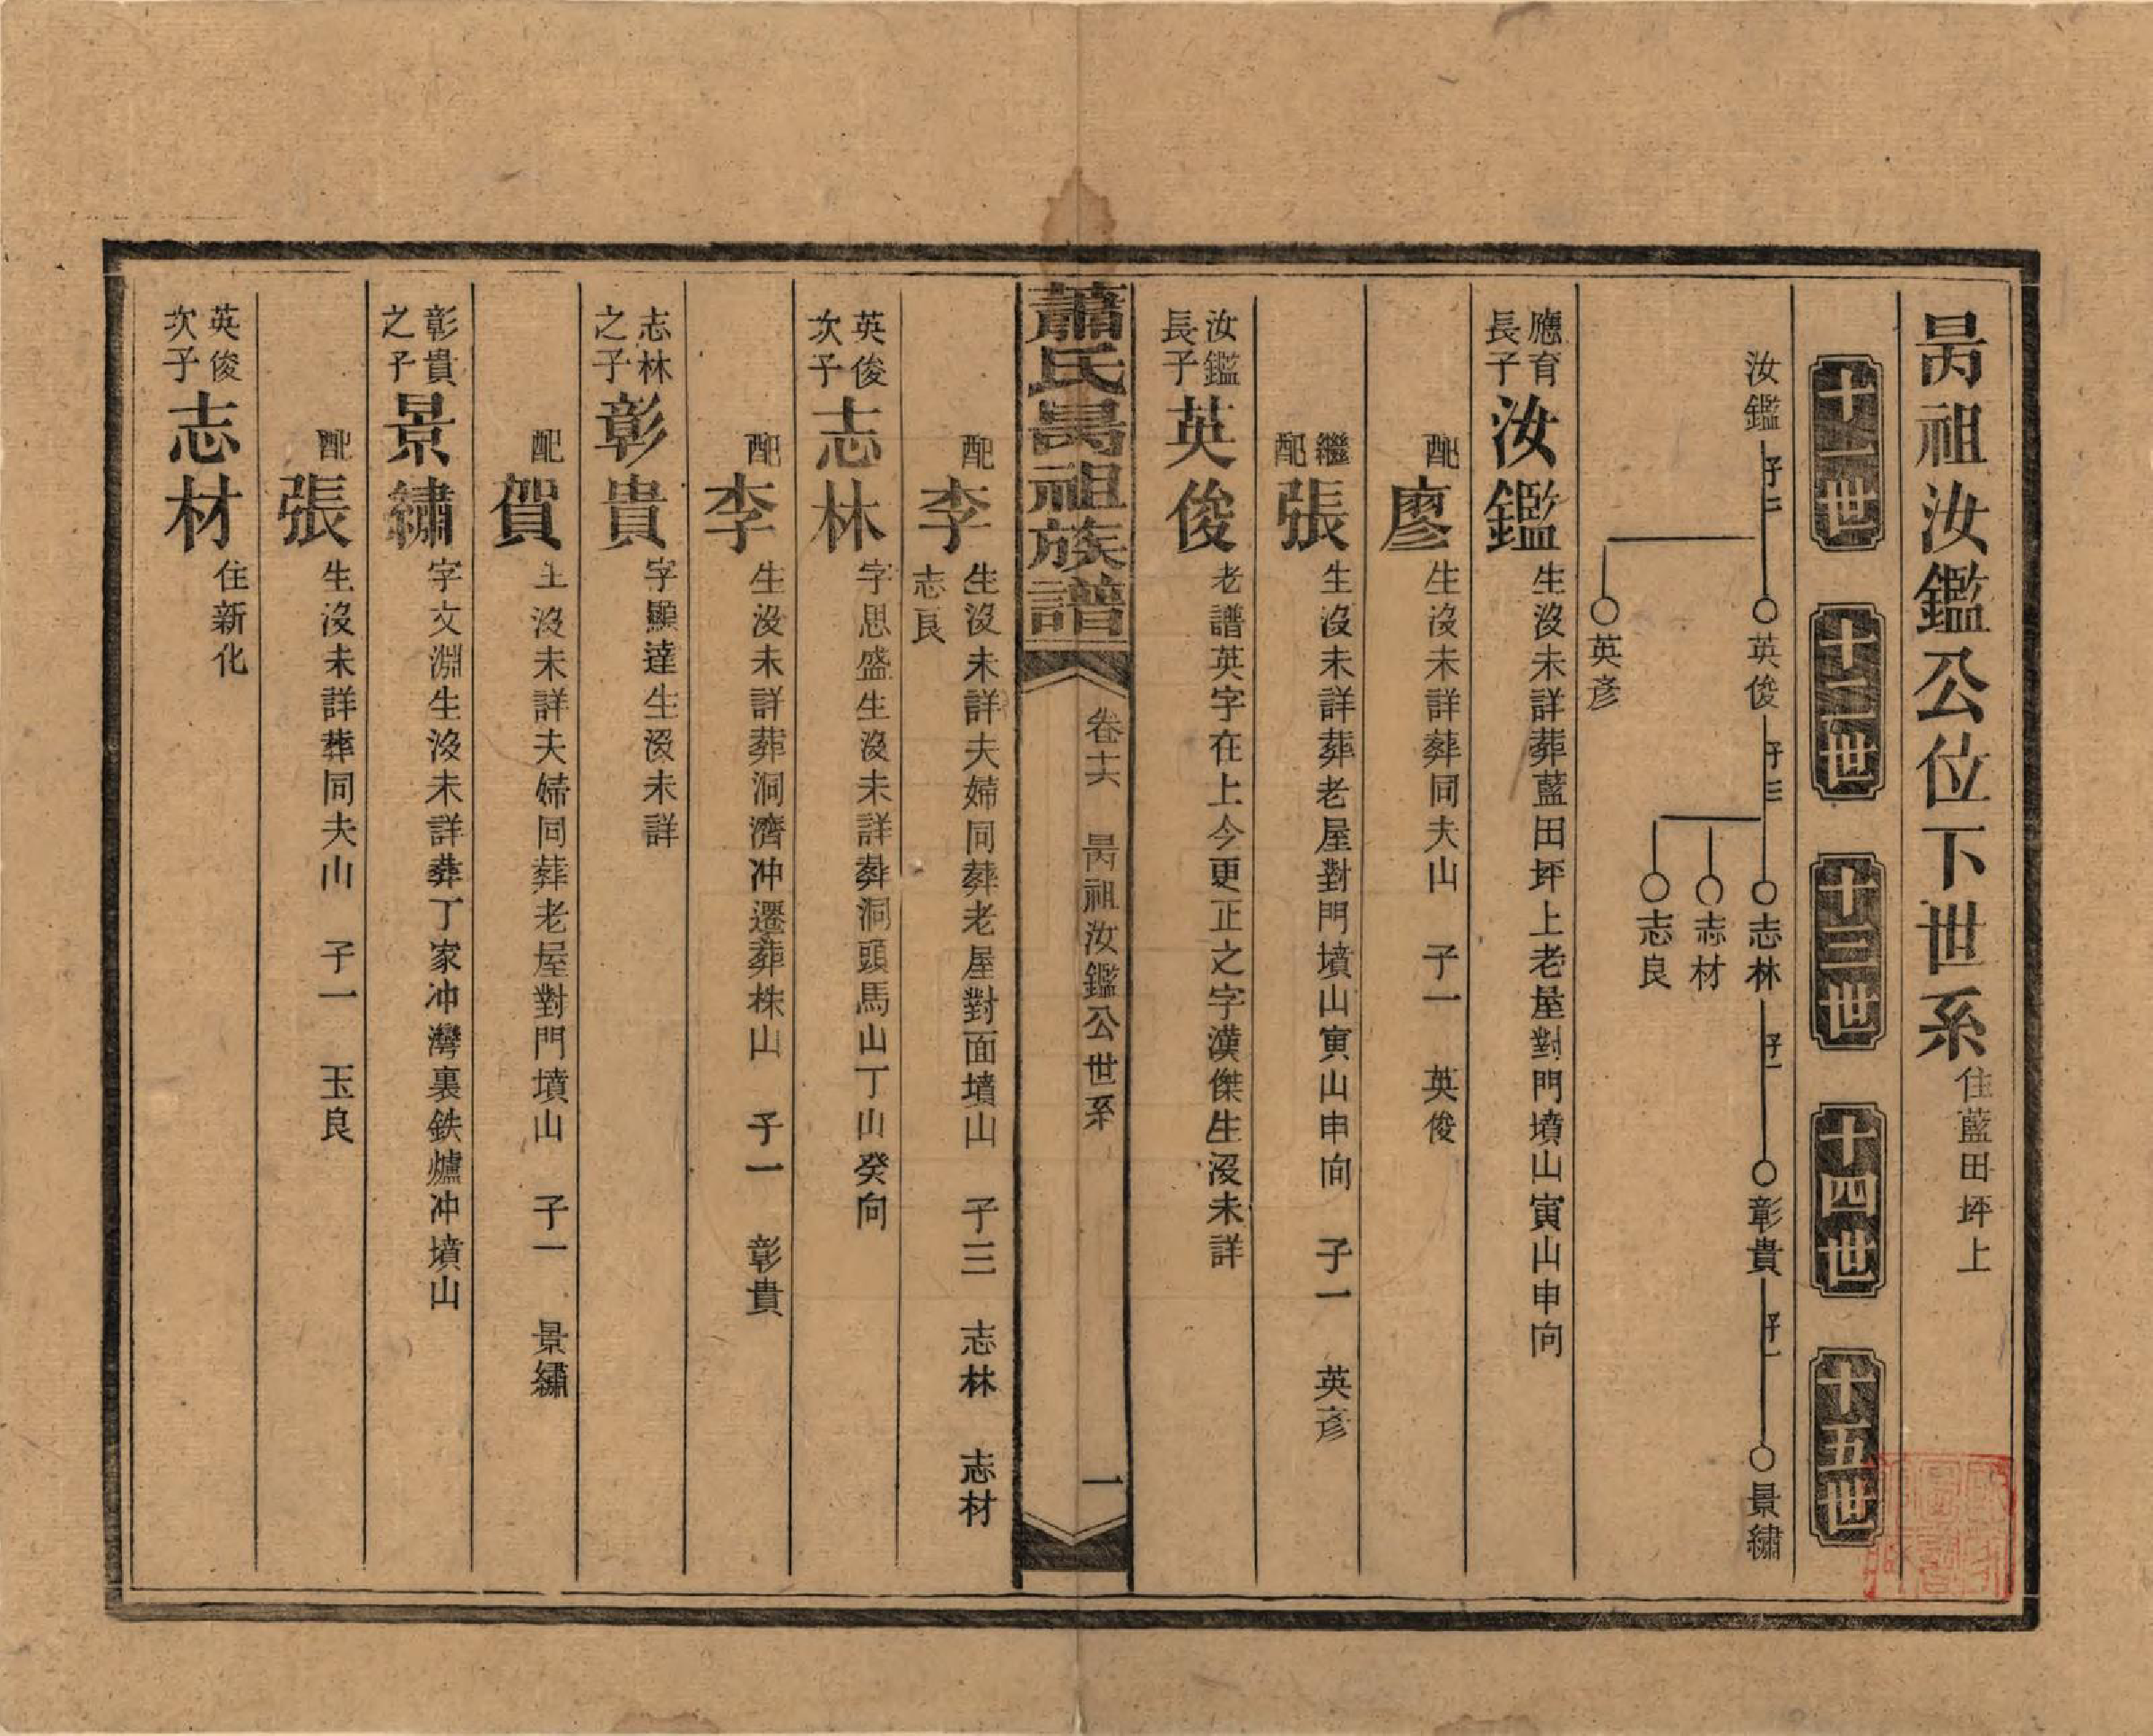 昺祖汝鑑公位下世系 住藍田坪上
十一世 十二世 十三世 十四世 十五世
汝鑑 子二 英俊 子三 志林 子一 彰貴 子一 景繡
志材
志良
英彥
應育長子 汝鑑 生沒未詳葬藍田坪上老屋對門墳山寅山申向
配 廖 生沒未詳葬同夫山 子一 英俊
繼配 張 生沒未詳葬老屋對門墳山寅山申向 子一 英彥
汝鑑長子 英俊 老譜英字在上今更正之字漢傑生沒未詳
蕭氏昺祖族譜 卷十六 昺祖汝鑑公世系 一
配 李 生沒未詳夫婦同葬老屋對面墳山 子三 志林 志材
志良
英俊次子 志林 字思盛生沒未詳葬洞頭馬山丁山癸向
配 李 生沒未詳葬洞濟冲遷葬株山 子一 彰貴
志林之子 彰貴 字顯達生沒未詳
配 賀 生沒未詳夫婦同葬老屋對門墳山 子一 景繡
彰貴之子 景繡 字文淵生沒未詳葬丁家冲灣裏鉄爐冲墳山
配 張 生沒未詳葬同夫山 子一 玉良
英俊次子 志材 住新化